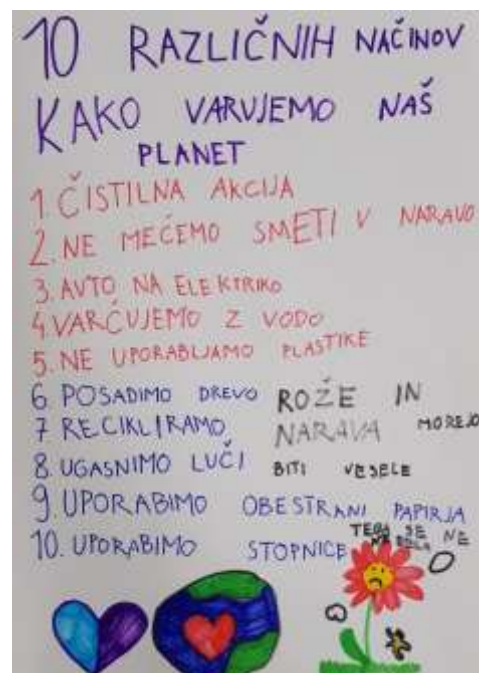 10 RAZLIČNIH NAČINOV
KAKO VARUJEMO NAŠ
PLANET
1. ČISTILNA AKCIJA
2. NE MEĆEMO SMETI V NARAVO
3. AVTO NA ELEKTRIKO
4 VARČUJEMO Z VODO
5. NE UPORABLJAMO PLASTIKE
6 POSADIMO DREVO
7 RECIKLIRAMO
8. UGASNIMO LUČI
9. UPORABIMO OBESTRANI PAPIRJA
10. UPORABIMO STOPNICE
ROŽE IN
NARAVA MOREJO
BITI VESELE
TEGA SE NE